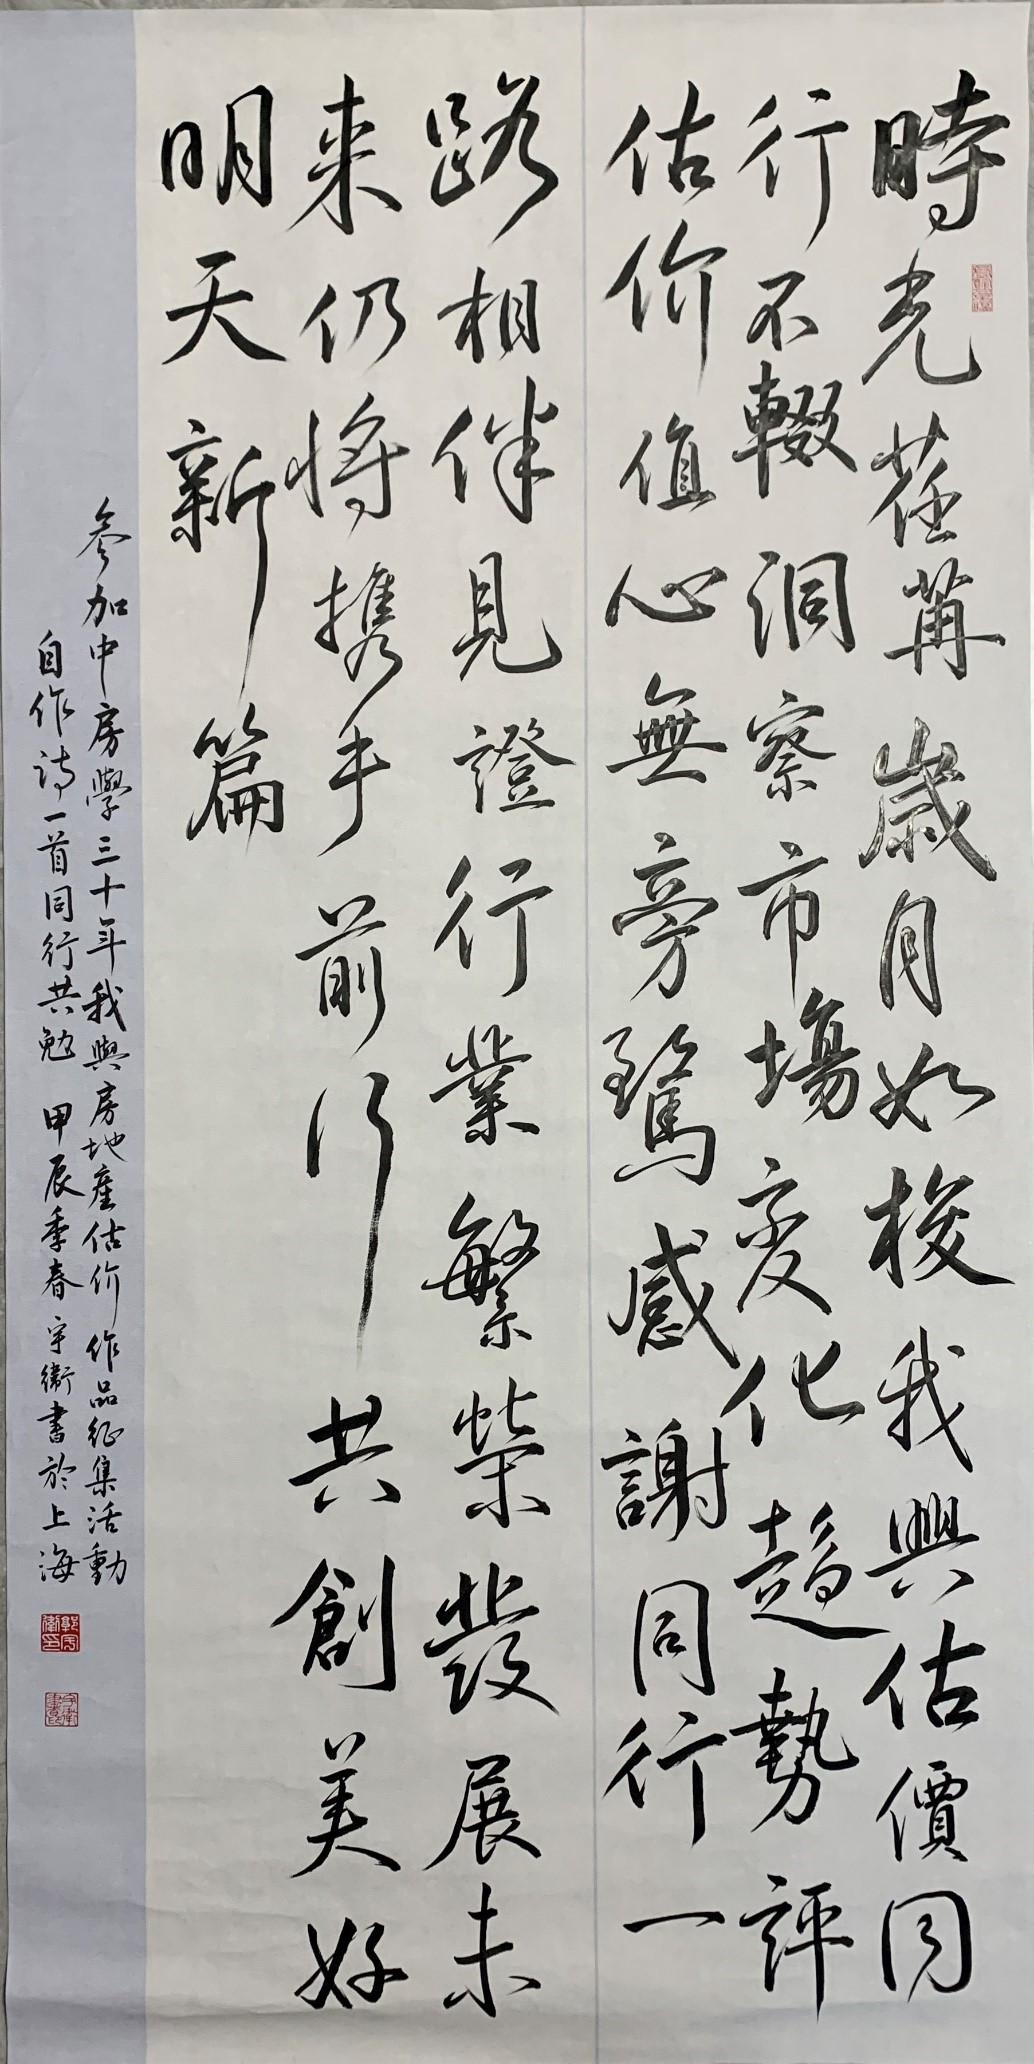 時光荏苒歲月如梭我與估價同
行不輟洞察市場变化趋勢評
估价值心無旁騖感謝同行一
路相伴見證行業繁荣發展未
来仍将携手前行共創美好
明天新篇
参加中房學三十年我與房地産估价作品征集活動
自作诗一首同行共勉 甲辰季春宇衛書於上海